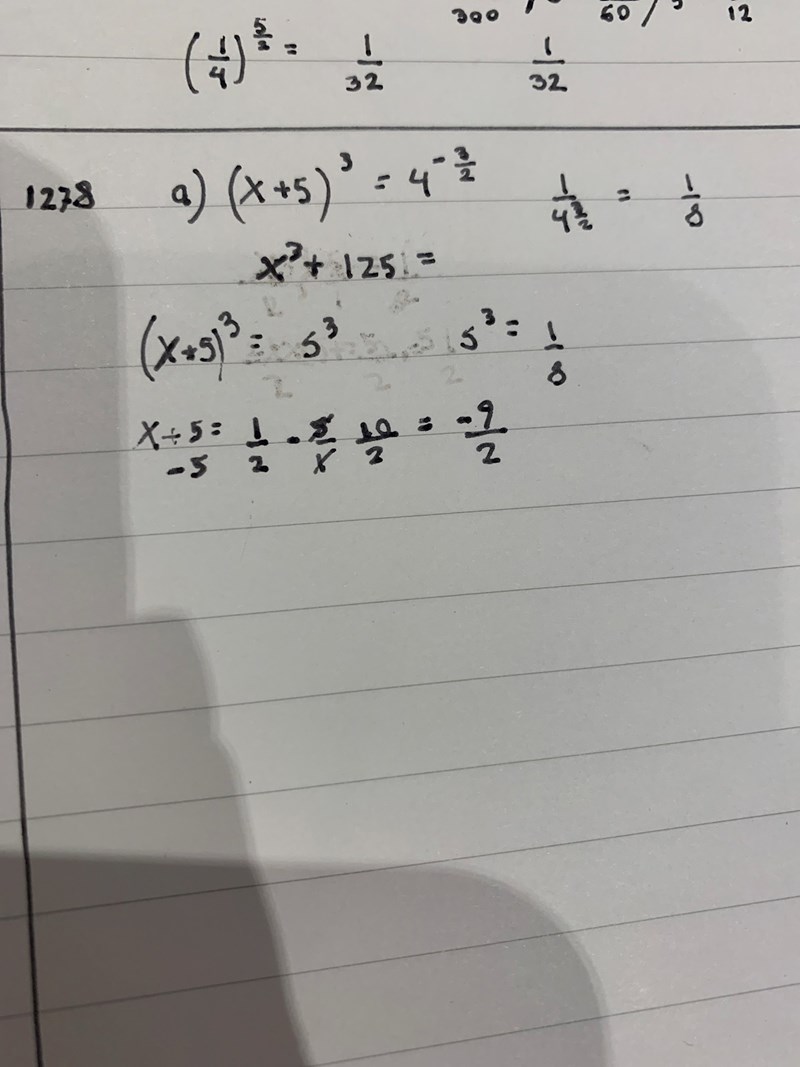 300 60 / 5 12
(1/4)^(5/2) = 1/32 1/32
1278 a) (x+5)^3 = 4^(-3/2) 1/4^(3/2) = 1/8
x^3 + 125 =
(x+5)^3 = 5^3 5^3 = 1/8
x+5 = 1/2 - 5/x 10/2 = -9/2
-5